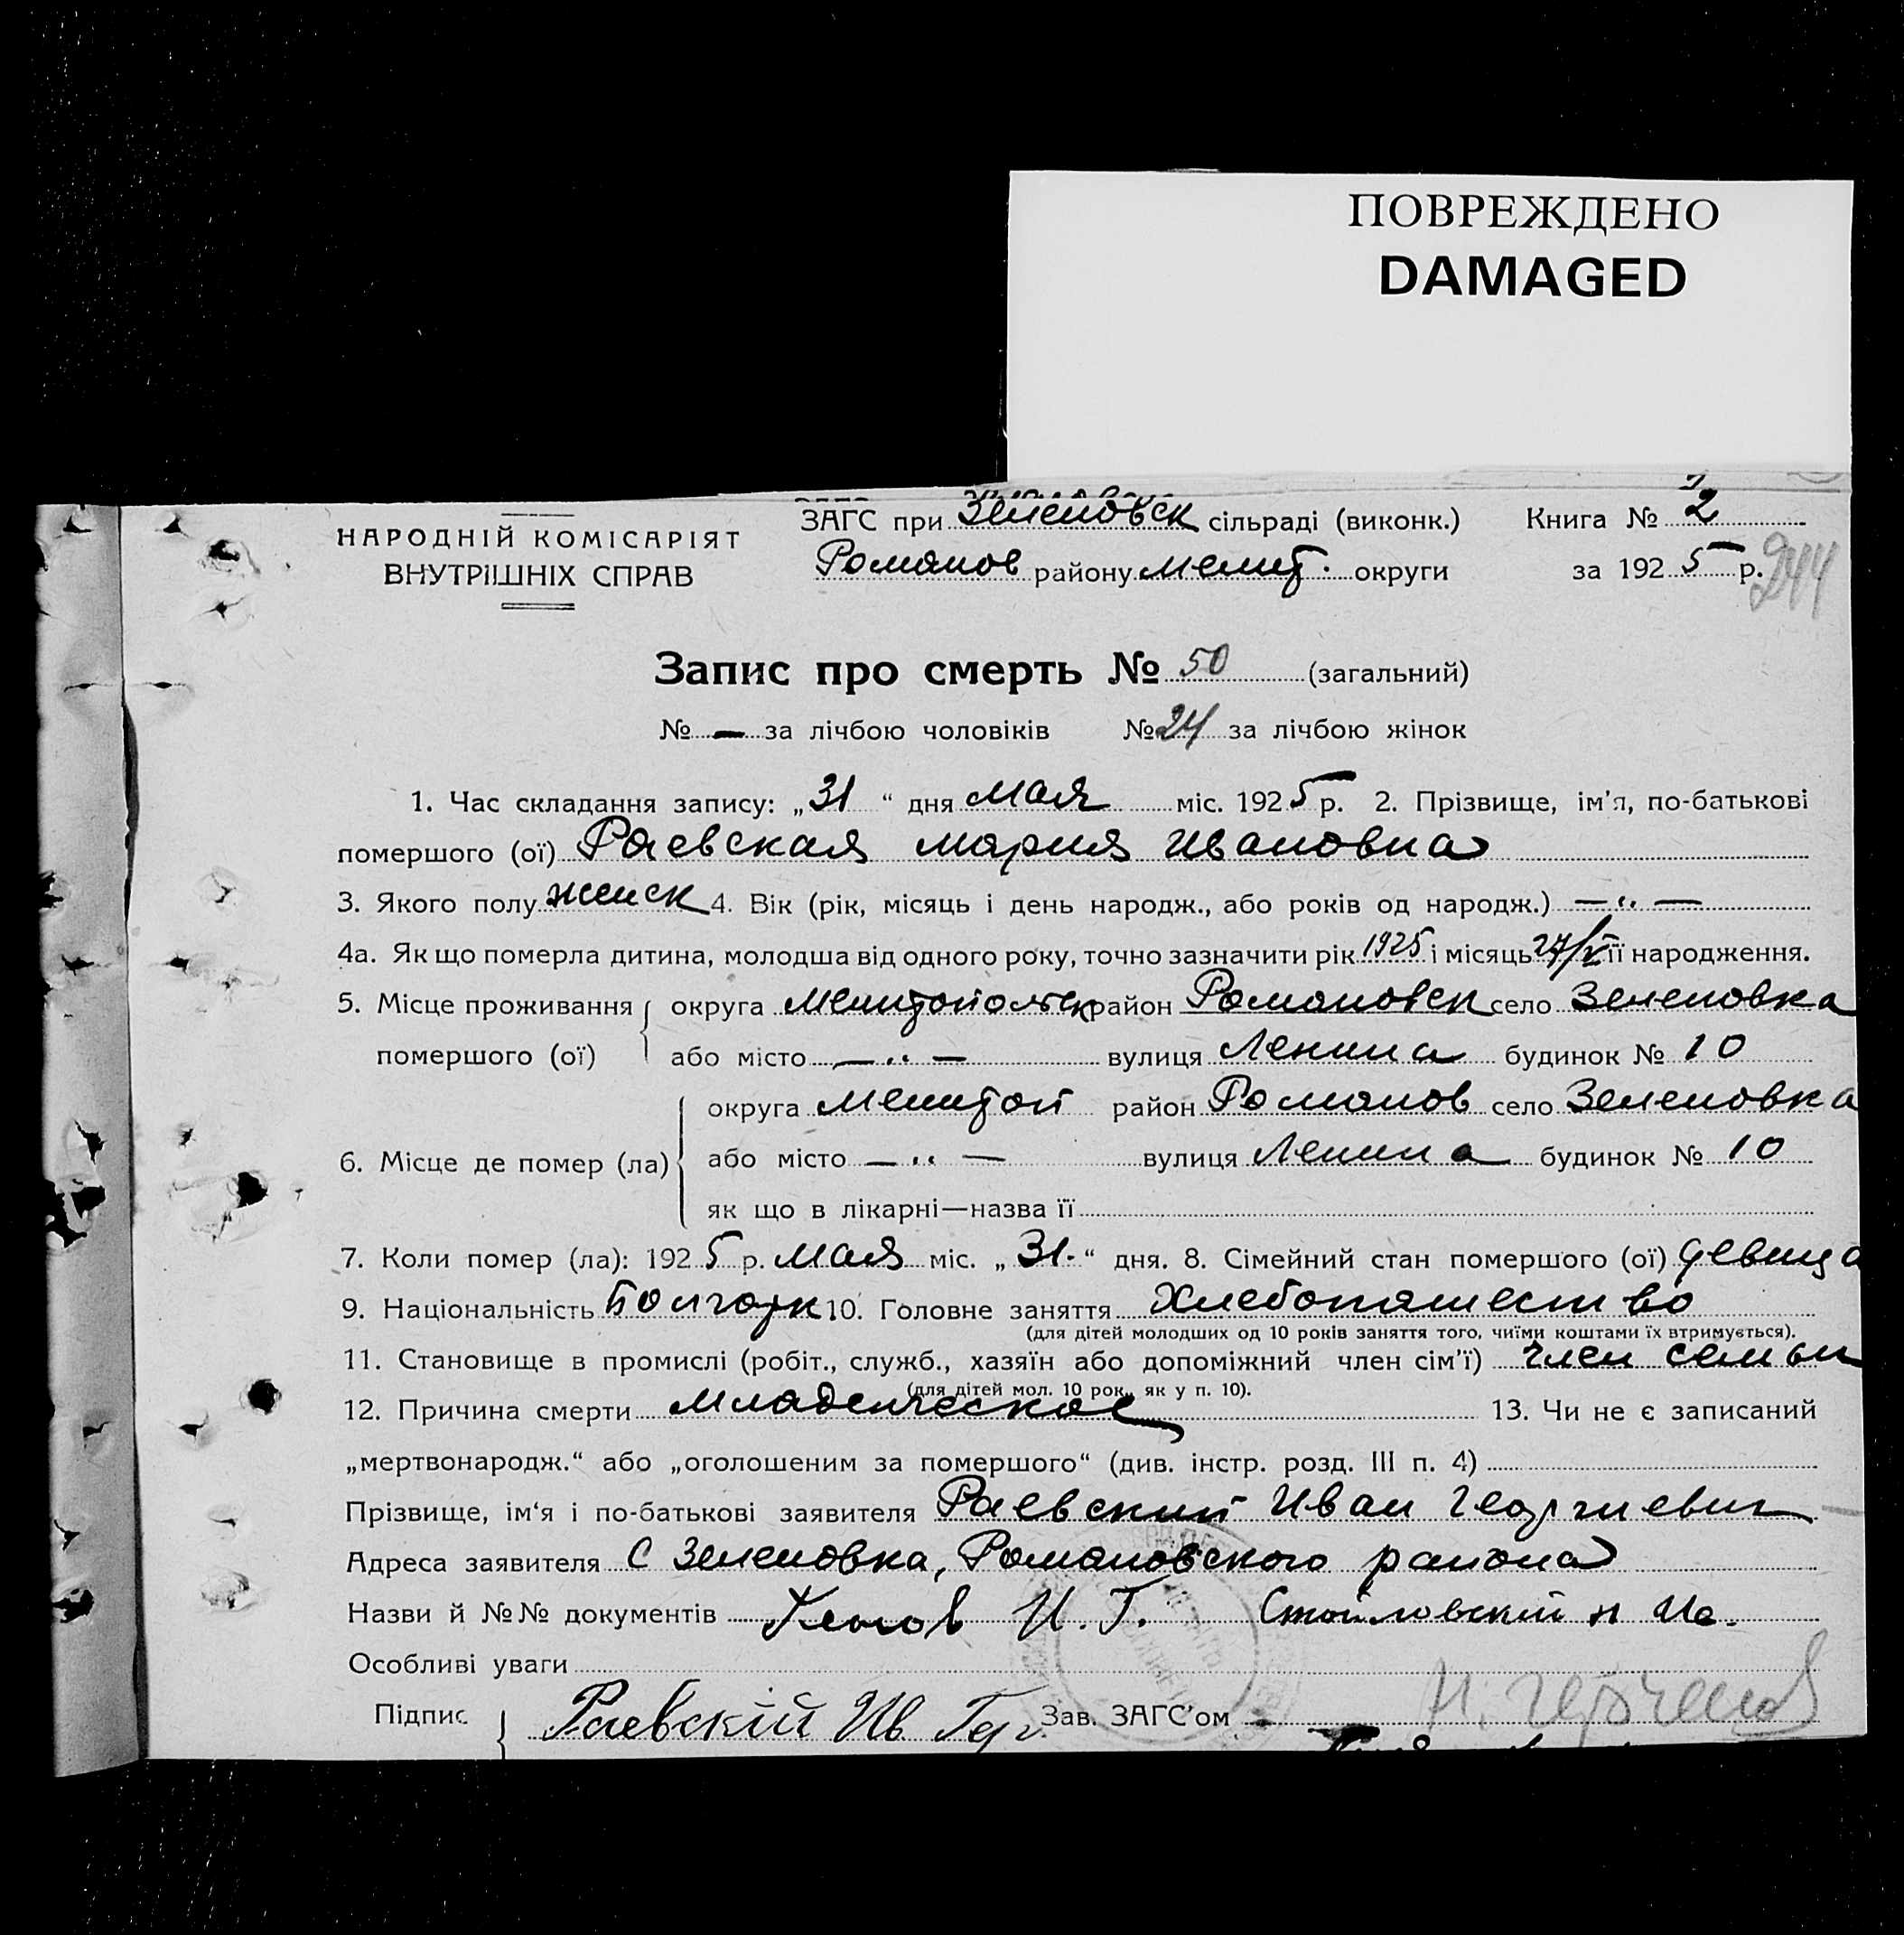 ПОВРЕЖДЕНО
DAMAGED
НАРОДНІЙ КОМІСАРІЯТ
ВНУТРІШНІХ СПРАВ
ЗАГС при Зеленовск сільраді (виконк.) Книга № 2
Романов району Мелит. округи за 1925 р. 244
Запис про смерть № 50 (загальний)
№ — за лічбою чоловіків № 24 за лічбою жінок
1. Час складання запису: „31“ дня мая міс. 1925 р. 2. Прізвище, ім'я, по-батькові
помершого (ої) Раевская Мария Ивановна
3. Якого полу женск 4. Вік (рік, місяць і день народж., або років од народж.) — „ —
4а. Як що померла дитина, молодша від одного року, точно зазначити рік 1925 і місяць 27/V її народження.
5. Місце проживання округа Мелитопольск район Романовск село Зеленовка
помершого (ої) або місто — „ — вулиця Ленина будинок № 10
округа Мелитоп район Романов село Зеленовка
6. Місце де помер (ла) або місто — „ — вулиця Ленина будинок № 10
як що в лікарні—назва її
7. Коли помер (ла): 1925 р. мая міс. „31.“ дня. 8. Сімейний стан помершого (ої) девица
9. Національність Болгарк 10. Головне заняття Хлебопашество
(для дітей молодших од 10 років заняття того, чиїми коштами їх втримується).
11. Становище в промислі (робіт., служб., хазяїн або допоміжний член сім'ї) член семьи
(для дітей мол. 10 рок., як у п. 10).
12. Причина смерти Младенческое 13. Чи не є записаний
„мертвонародж.“ або „оголошеним за помершого“ (див. інстр. розд. III п. 4)
Прізвище, ім'я і по-батькові заявителя Раевский Иван Георгиевич
Адреса заявителя С Зеленовка, Романовского района
Назви й №№ документів И. Г.
Особливі уваги
Підпис Раевскій Ив. Гер. Зав. ЗАГС'ом